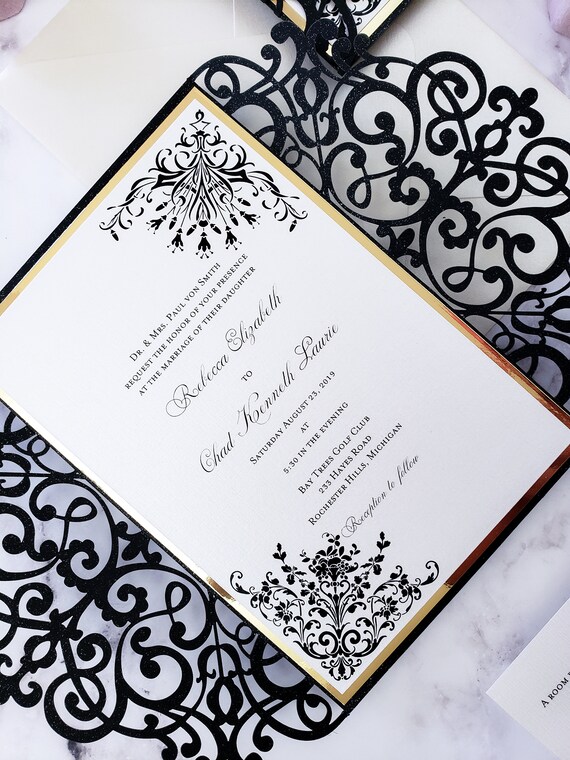 Dr. & Mrs. Paul von Smith
request the honor of your presence
at the marriage of their daughter
Rebecca Elizabeth
to
Chad Kenneth Laurie
Saturday August 23, 2019
at
5:30 in the evening
Bay Trees Golf Club
233 Hayes Road
Rochester Hills, Michigan
Reception to follow
A room